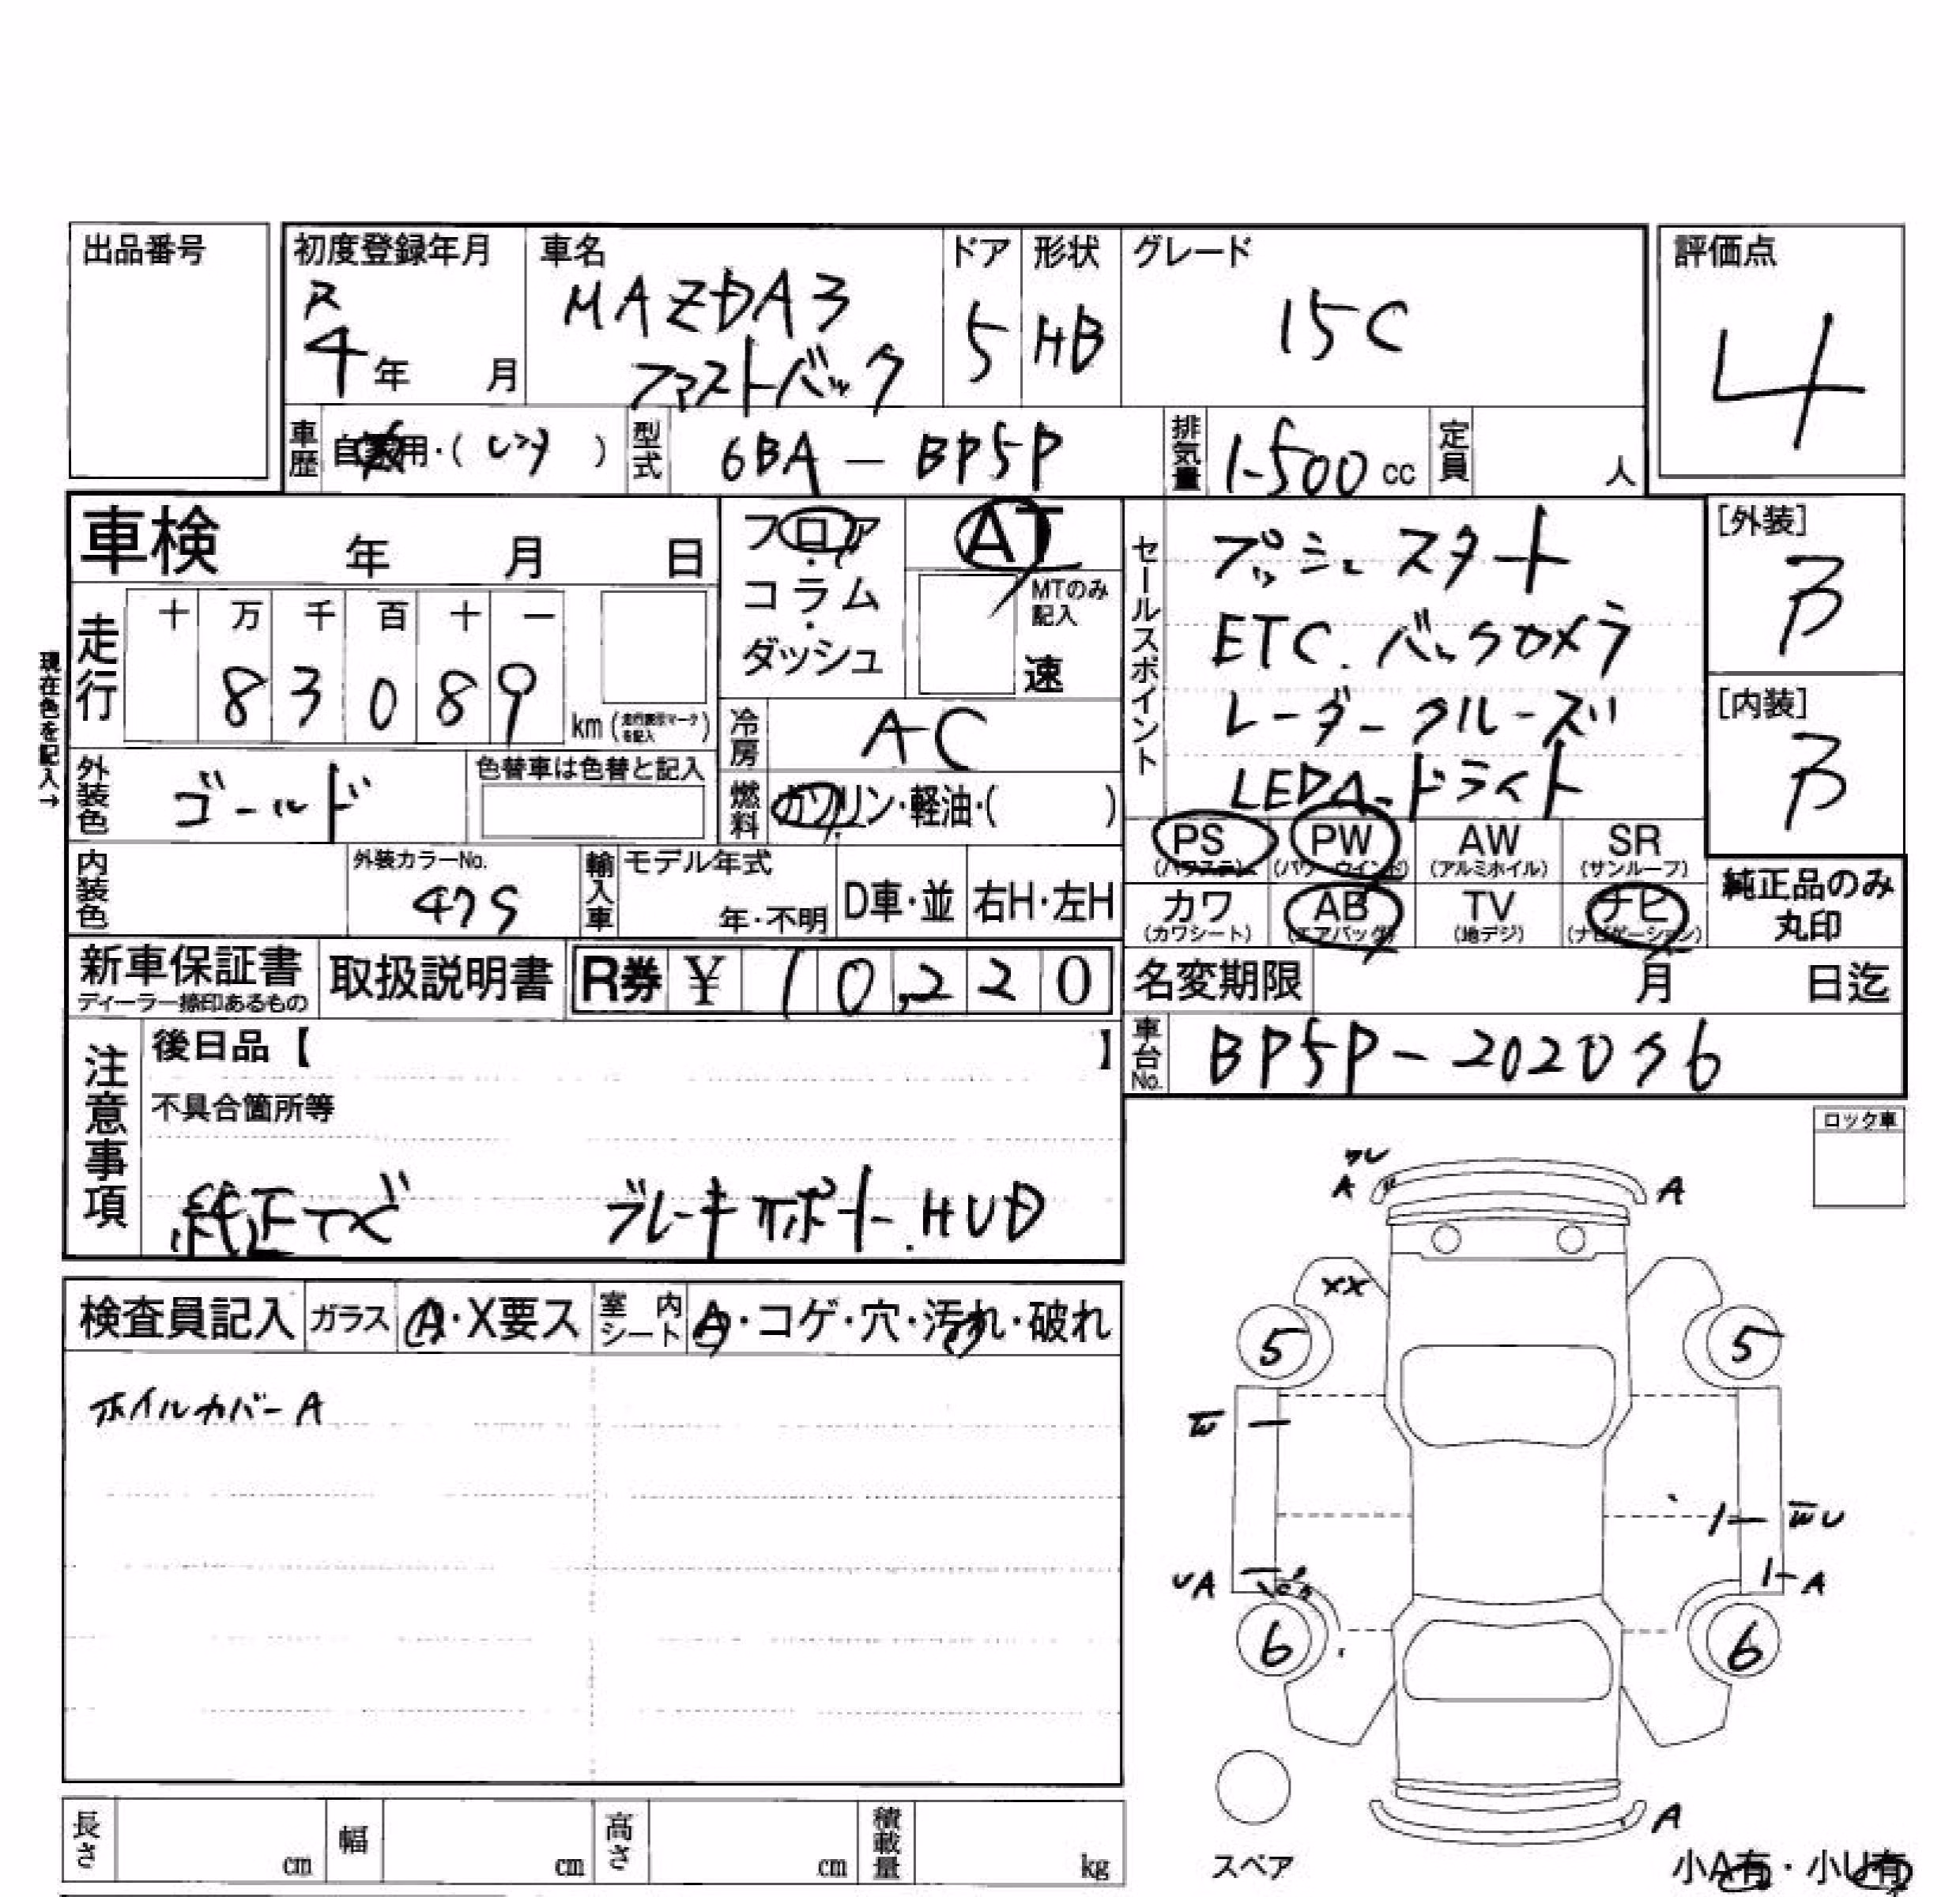 出品番号
初度登録年月 R 4年 月
車名 MAZDA3 ファストバック
ドア 5
形状 HB
グレード 15C
評価点 4
車歴 自家用・( レンタ )
型式 6BA-BP5P
排気量 1500cc
定員 人
車検 年 月 日
フロア・コラム・ダッシュ
AT
MTのみ記入
速
セールスポイント
プッシュスタート
ETC. バックカメラ
レーダークルーズ
LEDヘッドライト
[外装] B
[内装] B
現在色を記入→
走行 十 万 千 百 十 一
8 3 0 8 9 km (走行表示マークを記入)
冷房 AC
外装色 ゴールド
色替車は色替と記入
燃料 ガソリン・軽油・( )
PS (パワステ) PW (パワーウインド) AW (アルミホイル) SR (サンルーフ)
カワ (カワシート) AB (エアバッグ) TV (地デジ) ナビ (ナビゲーション)
純正品のみ丸印
内装色
外装カラーNo. 47S
輸入車 モデル年式 年・不明 D車・並 右H・左H
新車保証書 ディーラー捺印あるもの
取扱説明書
R券 ¥ 10,220
名変期限 月 日迄
車台No. BP5P-202076
注意事項
後日品【 】
不具合箇所等
純正ナビ ブレーキサポート. HUD
ロック車
検査員記入 ガラス A・X要ス 室内シート A・コゲ・穴・汚れ・破れ
ホイルカバーA
A A
XX
5 5
W WU
UA A
6 6
A
スペア
小A有・小U有
長さ cm 幅 cm 高さ cm 積載量 kg